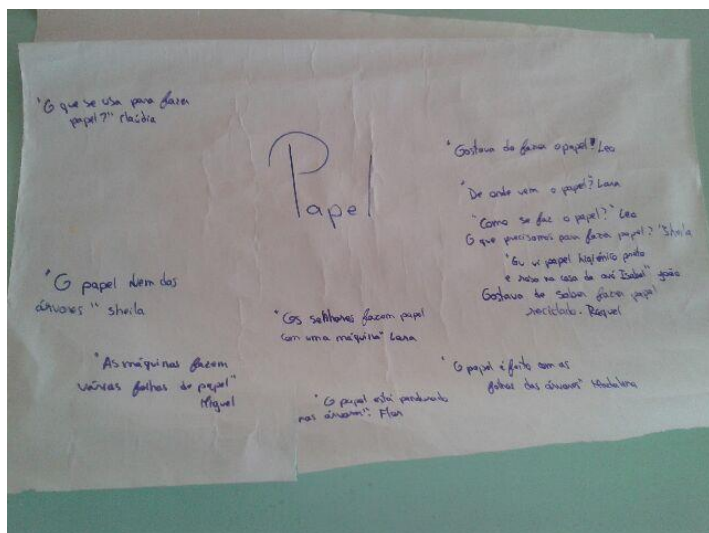 "O que se usa para fazer
papel?" Claúdia
Papel
"Gostava de fazer o papel" Leo
"De onde vem o papel? Lara
"Como se faz o papel?" Leo
O que precisamos para fazer papel? "Sheila
"Eu vi papel higiénico preto
e rosa na casa da avó Isabel" João
Gostava de saber fazer papel
reciclado. Raquel
"O papel vem das
árvores" Sheila
"Os senhores fazem papel
com uma máquina" Lara
"As máquinas fazem
várias folhas de papel"
Miguel
"O papel é feito com as
folhas das árvores" Madalena
"O papel está pendurado
nas árvores".